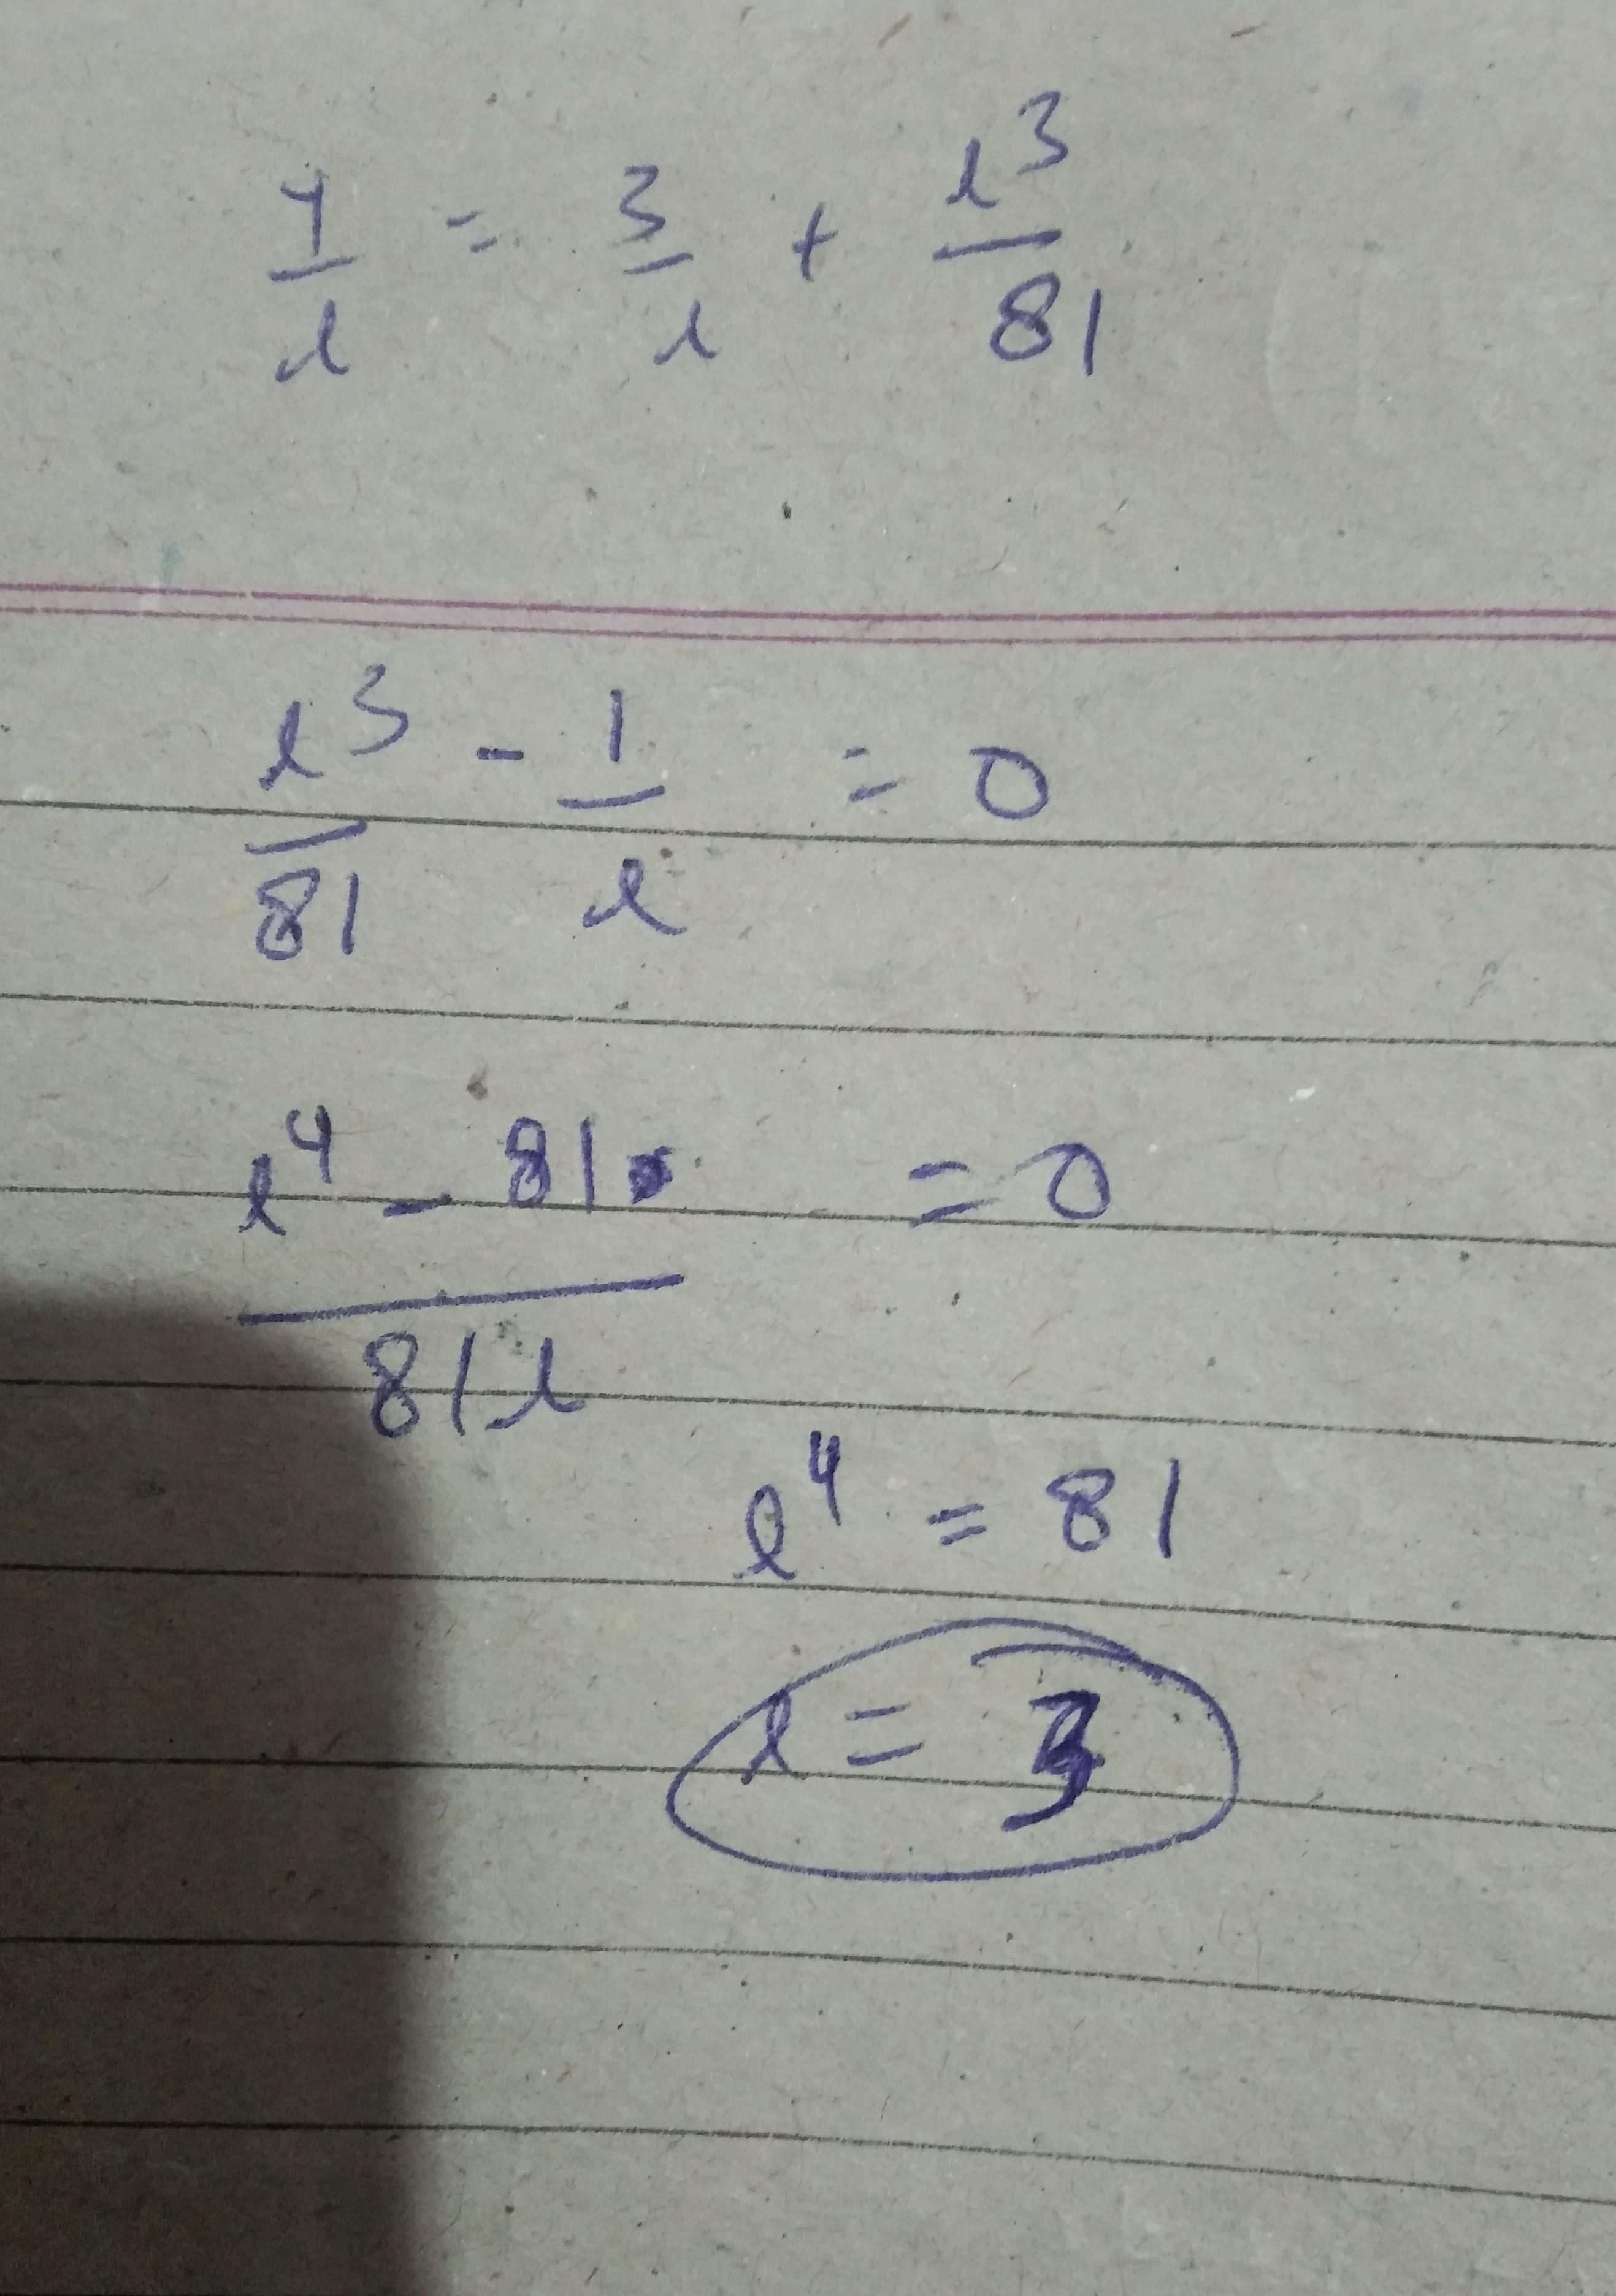 4/l = 3/l + l³/81
l³/81 - 1/l = 0
l⁴ - 81 / 81l = 0
l⁴ = 81
l = 3